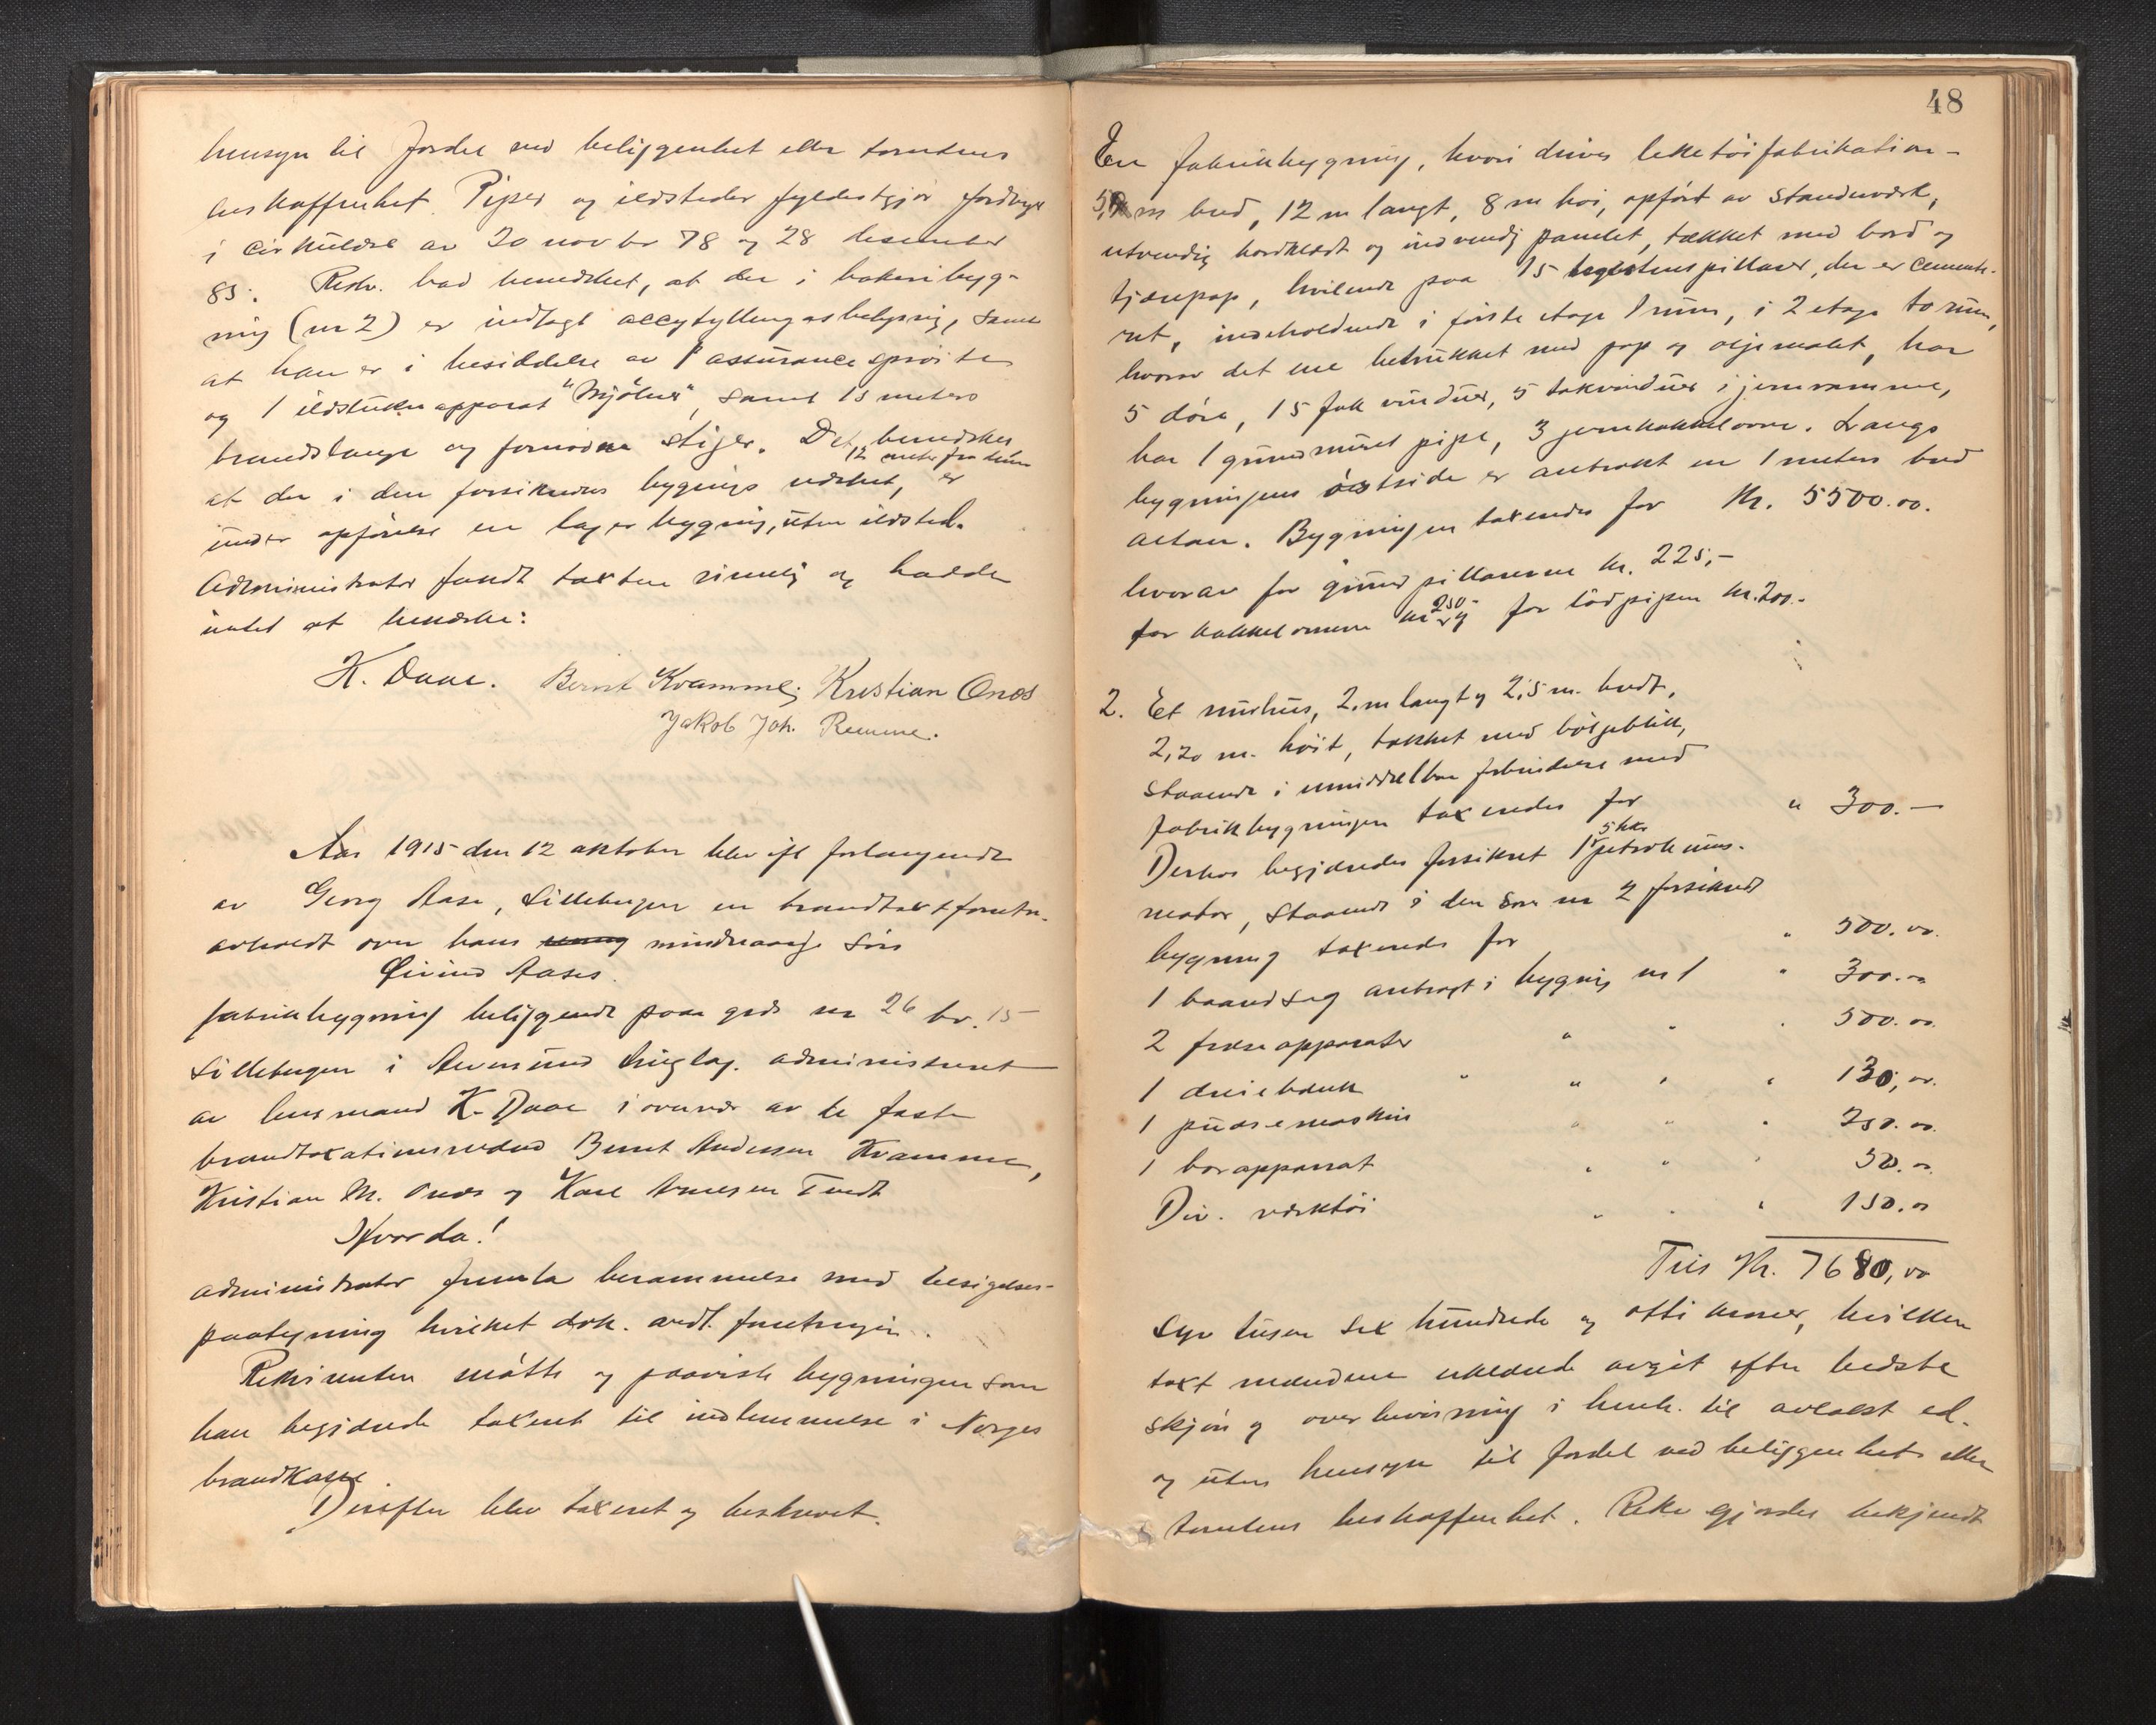 hensyn til fordel ved beliggenhet eller tomtens
beskaffenhet. Piper og ildsteder fyldestgjør fordringer
i cirkulære av 20 novbr 78 og 28 desember
83. Rekv. bad bemerket, at der i bakeribyg-
ning (nr 2) er indlagt accytyllengasbelysning, samt
at han er i besiddelse av 1 assurance sprøite
og 1 ildslukn apparat "Mjølner", samt 15 meters
brandslange og fornødne stiger. Det bemerkes
12 meter fra denne
at der i den forsikredes bygnings nærhet, er
under opførelse en lagerbygning, uten ildsted.
Administrator fandt taxten rimelig og hadde
intet at bemerke:
K. Daae. Bernt Kvamme; Kristian Onæs
Jakob Joh. Remme.
Aar 1915 den 12 oktober blev ifl forlangende
av Georg Aase, Lillebergen en brandtaxtforretn.
avholdt over hans mindreaarige søn
Øivind Aases.
fabrikbygning beliggende paa grds nr 26 br. 15
Lillebergen i tinglag. administreret
av lensmand K. Daae i overvær av de faste
brandtaxationsmænd Bernt Andersen Kvamme,
Kristian M. Onæs og Karl Arnesen Tvedt
Hvorda!
administrator fremla berammelse med tilsigelses-
paategning hvilket dok. vedl. forretningen.
Rekvirenten møtte og paaviste bygningen som
han begjærede taxeret til indlemmelse i Norges
brandkasse.
Derefter blev taxeret og beskrevet.
48
En fabrikbygning, hvori drives leketøifabrikation-
m bred, 12 m langt, 8 m høi, opført av standverk,
utvendig bordklædt og indvendig panelet, tækket med bord og
tjærepap, hvilende paa 15 teglstenspillarer, der er cemente-
ret, indeholdende i første etage 1 rum, i 2 etage to rum,
hvorav det ene betrukket med pap og oljemalet, har
5 døre, 15 fak vinduer, 5 takvinduer i jernramme,
har 1 grundmuret pipe, 3 jernkakkelovne. Langs
bygningens østside er anbrakt en 1 meters bred
altan. Bygningen taxeredes for Kr. 5500.00.
hvorav for grundpillarerne kr. 225,-
for kakkelovnene kr 250- og for lødpipen kr. 200.-
2. Et murhus, 2. m langt og 2,5 m. bredt,
2,20 m. høit, tækket med bølgeblik,
staaende i umiddelbar forbindelse med
fabrikbygningen taxeredes for " 300.-
5 hks
Derhos begjæredes forsikret 1 petroleums-
motor, staaende i den som nr 2 forsikret
bygning taxeredes for " 500.00.
1 baandsag anbragt i bygning nr 1 " 300.00
2 fræseapparater " " . 500.00.
1 dreiebænk " " " " 130,00.
1 pudsemaskin " " " 250.00.
1 borapparat " " " 50.00
Div. verktøi " " " 150.00
Tils Kr. 7680,00
Syv tusen sex hundrede og otti kroner, hvilken
taxt mændene erklærede avgit efter bedste
skjøn og overbevisning i henh. til avlagt ed.
og uten hensyn til fordel ved beliggenhet eller
tomtens beskaffenhet. Rekv gjordes bekjendt